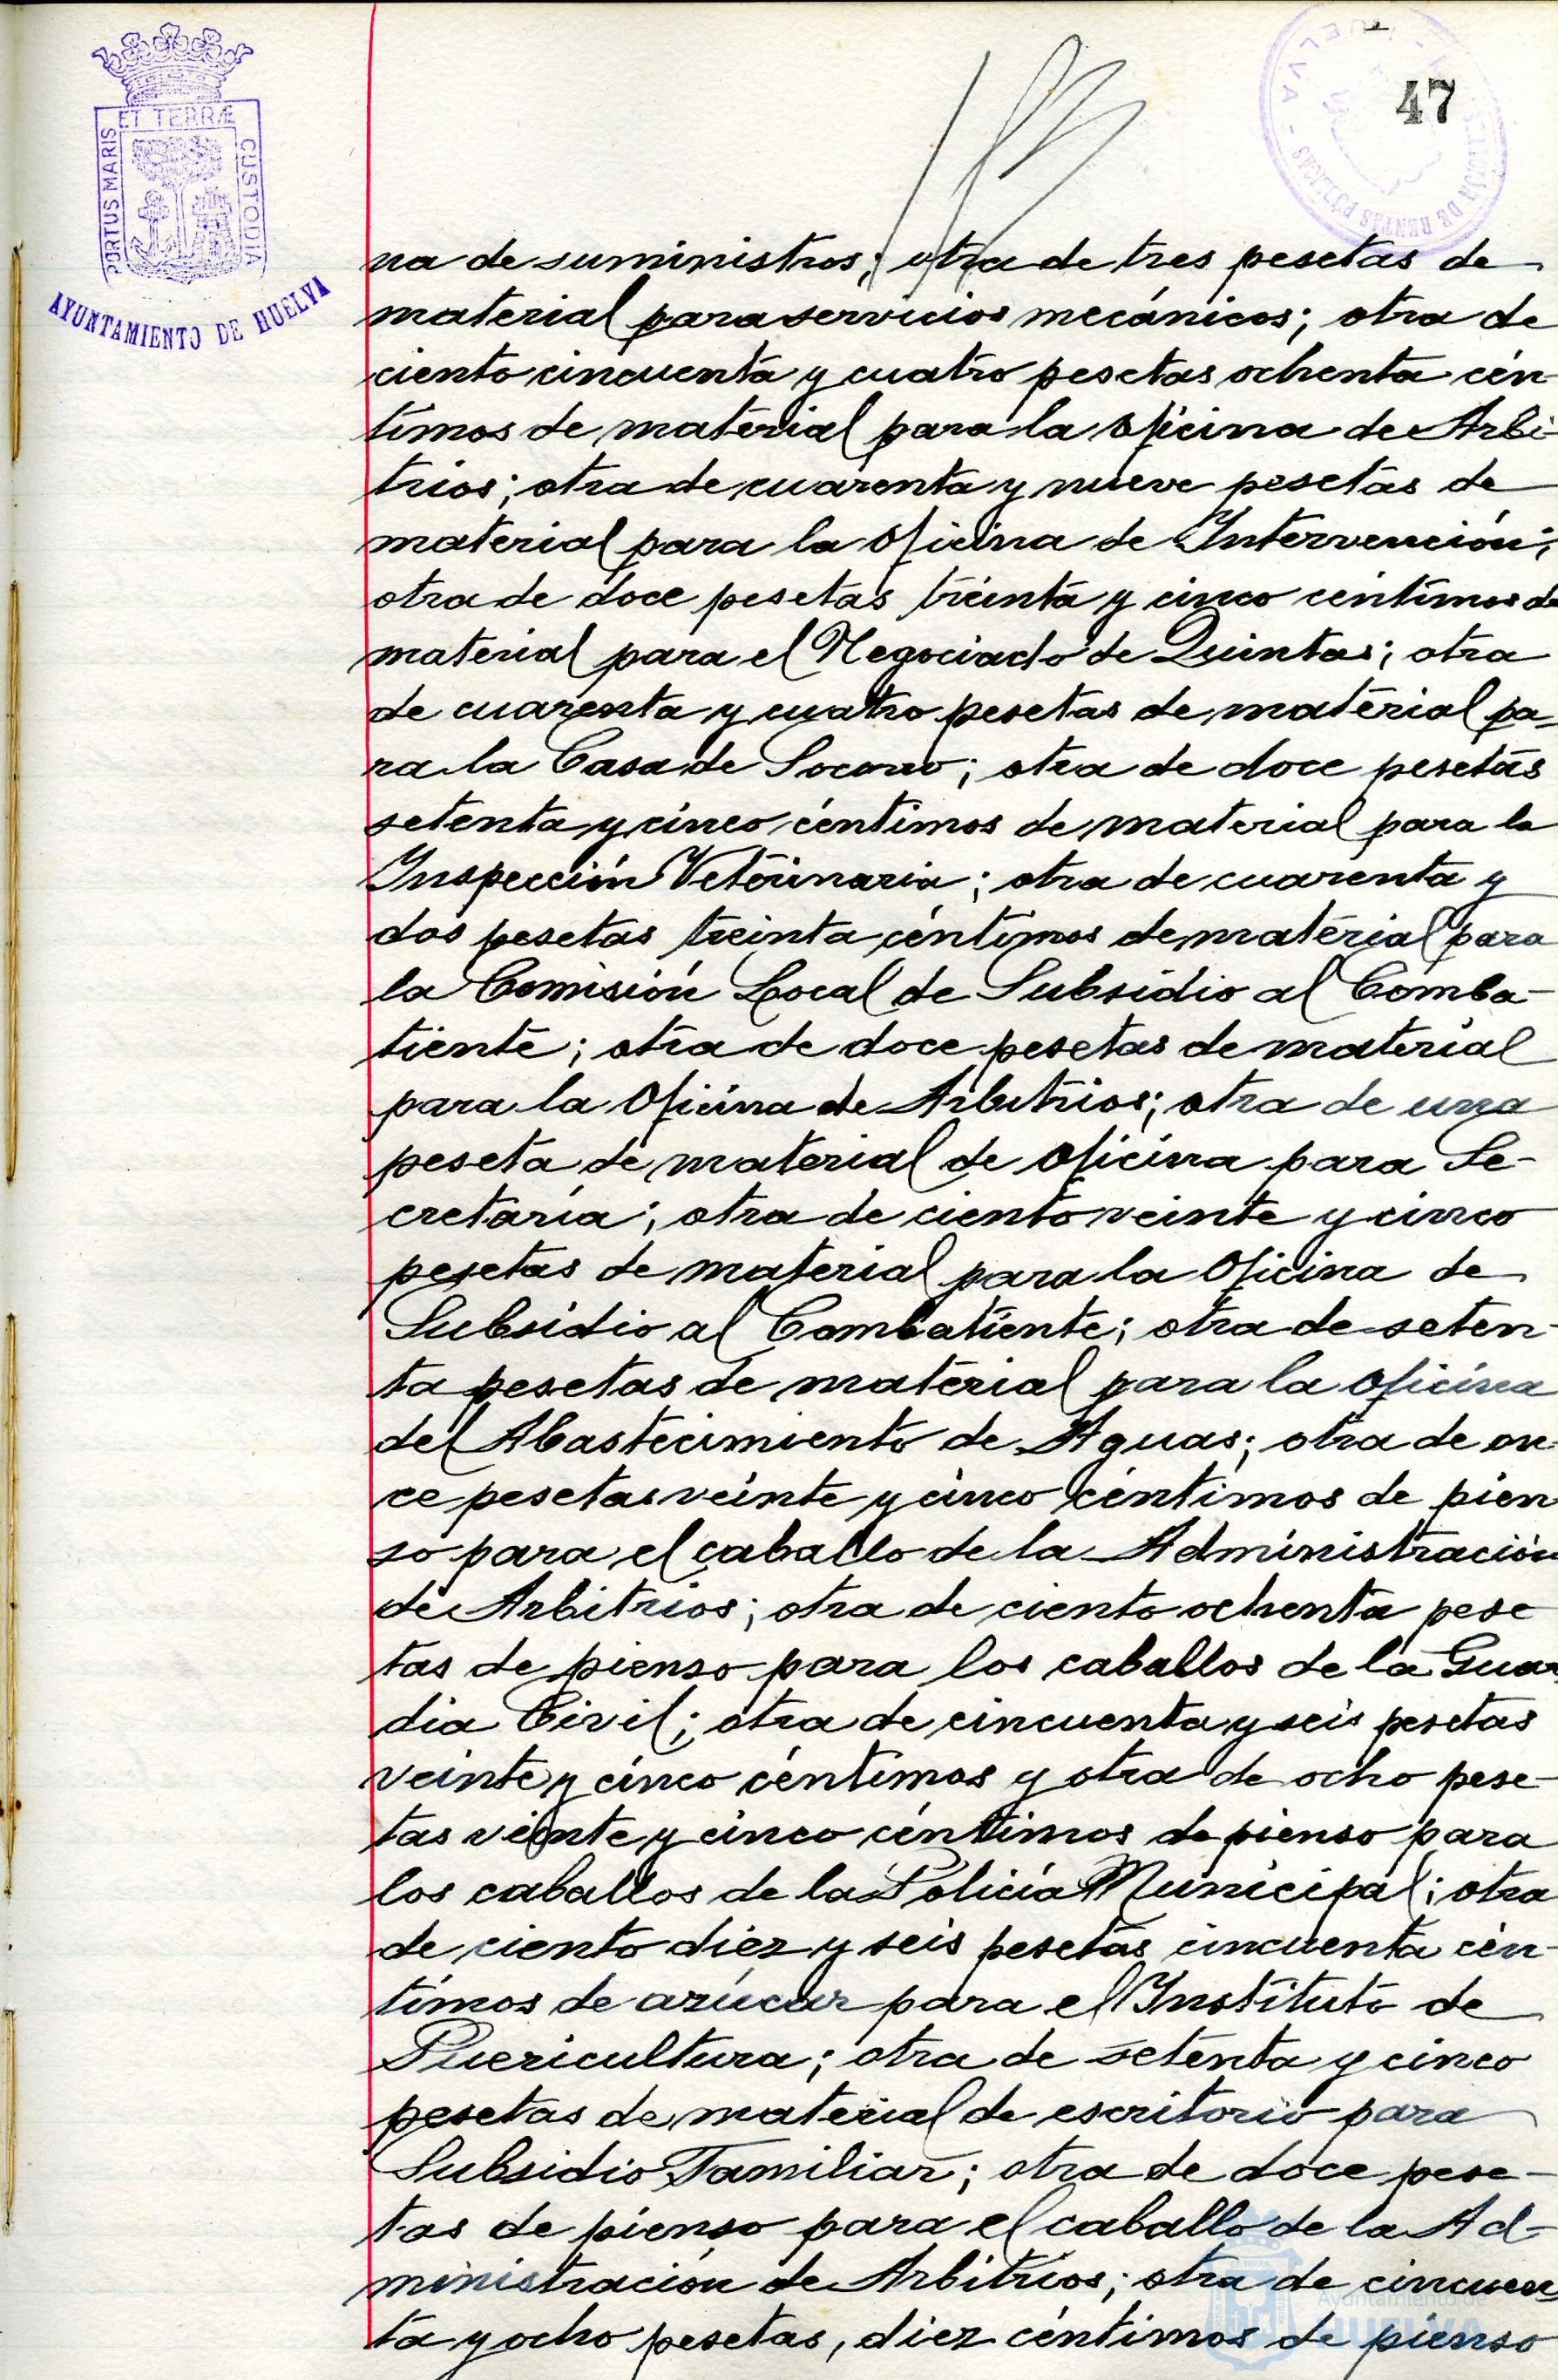 47
PORTUS MARIS
ET TERRÆ
CUSTODIA
AYUNTAMIENTO DE HUELVA
na de suministros; otra de tres pesetas de
material para servicios mecánicos; otra de
ciento cincuenta y cuatro pesetas ochenta cén-
timos de material para la oficina de Arbi-
trios; otra de cuarenta y nueve pesetas de
material para la oficina de Intervención;
otra de doce pesetas treinta y cinco centimos de
material para el Negociado de Quintas; otra
de cuarenta y cuatro pesetas de material pa-
ra la Casa de Socorro; otra de doce pesetas
setenta y cinco céntimos de material para la
Inspección Veterinaria; otra de cuarenta y
dos pesetas treinta céntimos de material para
la Comisión Local de Subsidio al Comba-
tiente; otra de doce pesetas de material
para la Oficina de Arbitrios; otra de una
peseta de material de oficina para Se-
cretaría; otra de ciento veinte y cinco
pesetas de material para la Oficina de
Subsidio al Combatiente; otra de seten-
ta pesetas de material para la oficina
del Abastecimiento de Aguas; otra de on-
ce pesetas veinte y cinco céntimos de pien
so para el caballo de la Administración
de Arbitrios; otra de ciento ochenta pese
tas de pienso para los caballos de la Guar
dia Civil; otra de cincuenta y seis pesetas
veinte y cinco céntimos y otra de ocho pese-
tas veinte y cinco céntimos de pienso para
los caballos de la Policía Municipal; otra
de ciento diez y seis pesetas cincuenta cén-
timos de azúcar para el Instituto de
Puericultura; otra de setenta y cinco
pesetas de material de escritorio para
Subsidio Familiar; otra de doce pese-
tas de pienso para el caballo de la Ad-
ministración de Arbitrios; otra de cincuen
ta y ocho pesetas, diez céntimos de pienso
Ayuntamiento de
HUELVA